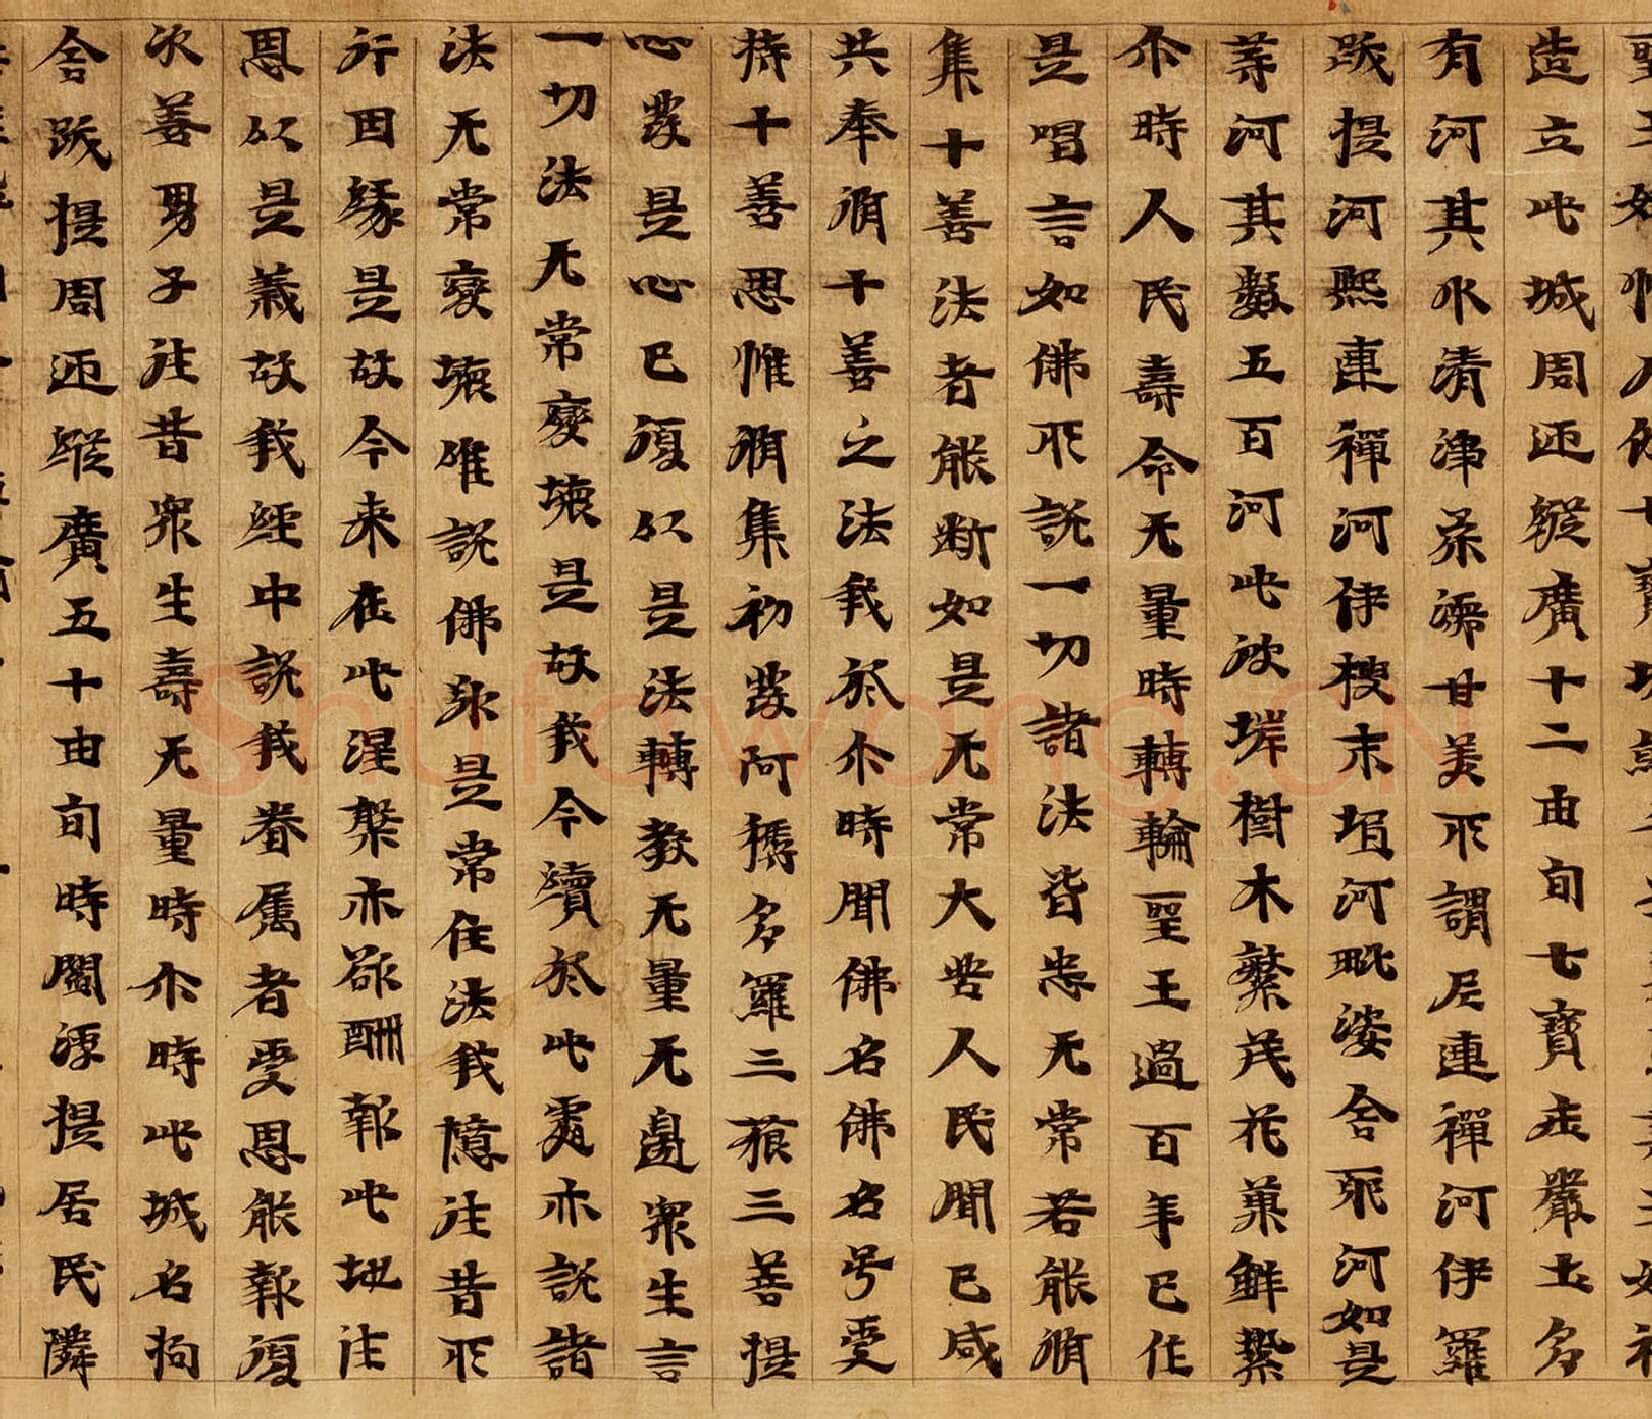 造立此城周迊縱廣十二由旬七寶庄嚴土多
有河其水清淨柔濡甘美所謂尼連禪河伊羅
跋提河熙連禪河伊搜末塠河毗婆舍那河如是
等河其數五百河此彼岸樹木繁茂花菓鮮潔
尒時人民壽命无量時轉輪聖王過百年已作
是唱言如佛所說一切諸法皆悉无常若能脩
集十善法者能断如是无常大苦人民聞已咸
共奉脩十善之法我於尒時聞佛名佛名号受
持十善思惟脩集初發阿耨多羅三藐三菩提
心發是心已復以是法轉教无量无邊眾生言
一切法无常變壞是故我今續於此處亦說諸
法无常變壞唯說佛身是常住法我憶往昔所
行因緣是故今来在此涅槃亦欲酬報此地往
恩以是義故我經中說我眷屬者受恩能報復
次善男子往昔眾生壽无量時尒時此城名拘
舍跋提周迊縱廣五十由旬時閻浮提居民隣
Shufawang.CN